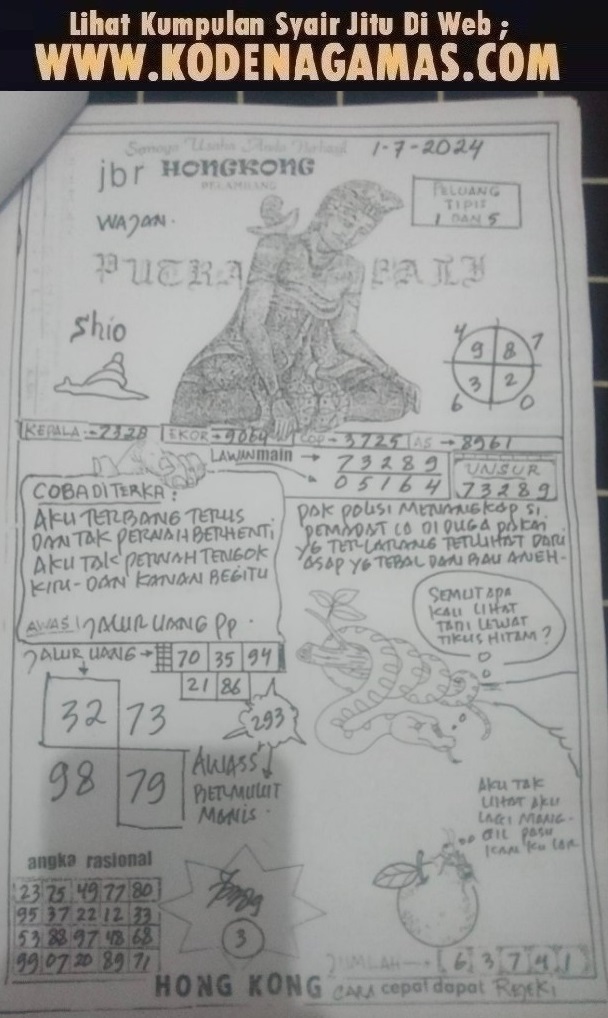 Lihat Kumpulan Syair Jitu Di Web ;
WWW.KODENAGAMAS.COM
Semoga Usaha Anda Berhasil
1-7-2024
jbr HONGKONG
PELUANG
TIPIS
1 DAN 5
WAJAN.
PUTRA BALI
Shio
4 9 8 7
6 3 2 0
KEPALA → 7328 EKOR → 9064 COP → 3725 AS → 8961
LAWAN main → 73289
05164
UNSUR
73289
COBA DI TERKA :
AKU TERBANG TERUS
DAN TAK PERNAH BERHENTI
AKU TAK PERNAH TENGOK
KIRI - DAN KANAN BEGITU
PAK POLISI MENANGKAP SI
PEMADAT LO DI DUGA PAKAI
YG TERLARANG TERLIHAT DARI
ASAP YG TEBAL DAN BAU ANEH -
AWAS! JALUR UANG PP .
SEMUT APA
KAU LIHAT
TADI LEWAT
TIKUS HITAM ?
JALUR UANG → 70 35 94
21 86
32 73
293
98 79
AWASS
BERMULUT
MANIS .
AKU TAK
LIHAT AKU
LAGI MANG-
GIL
angka rasional
23 75 49 77 80
95 37 22 12 33
53 88 97 48 68
99 07 20 89 71
3
JUMLAH → 6 3 7 4 1
HONG KONG CARA cepat dapat Rejeki